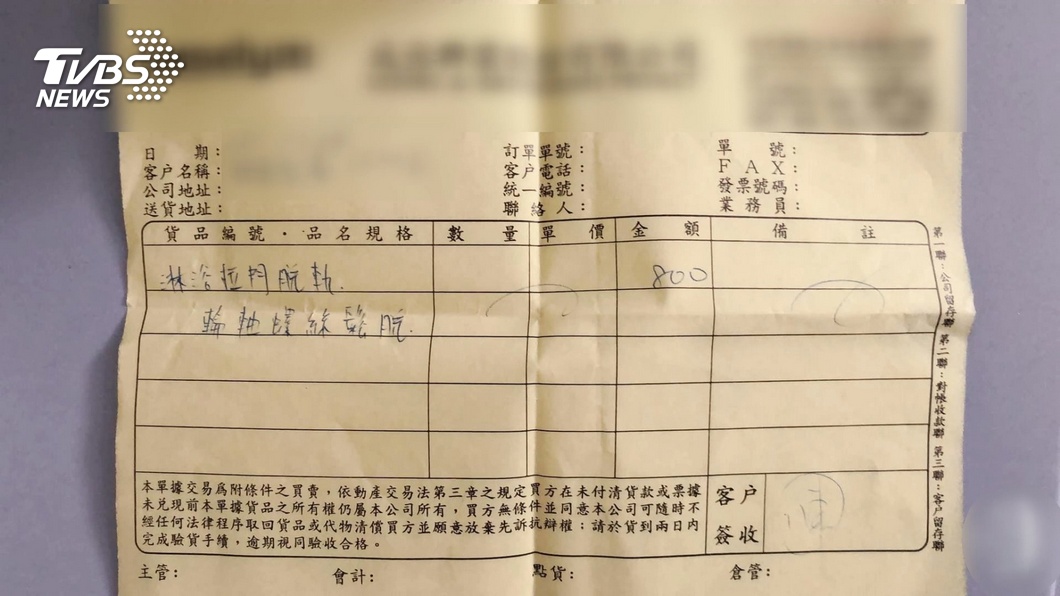 TVBS
NEWS
日期： 訂單單號： 單號：
客户名稱： 客户電話： FAX：
公司地址： 統一編號： 發票號碼：
送貨地址： 聯絡人： 業務員：
貨品編號・品名規格 數量 單價 金額 備註
淋浴拉門脫軌. 800
輪軸螺絲鬆脫.
本單據交易爲附條件之買賣，依動產交易法第三章之規定買方在未付清貨款或票據
未兑現前本單據貨品之所有權仍屬本公司所有，買方無條件並同意本公司可隨時不
經任何法律程序取回貨品或代物清償買方並願意放棄先訴抗辯權：請於貨到兩日内
完成驗貨手續，逾期視同驗收合格。
客户
簽收
主管： 會計： 點貨： 倉管：
第一聯：公司留存聯 第二聯：對帳收款聯 第三聯：客户留存聯